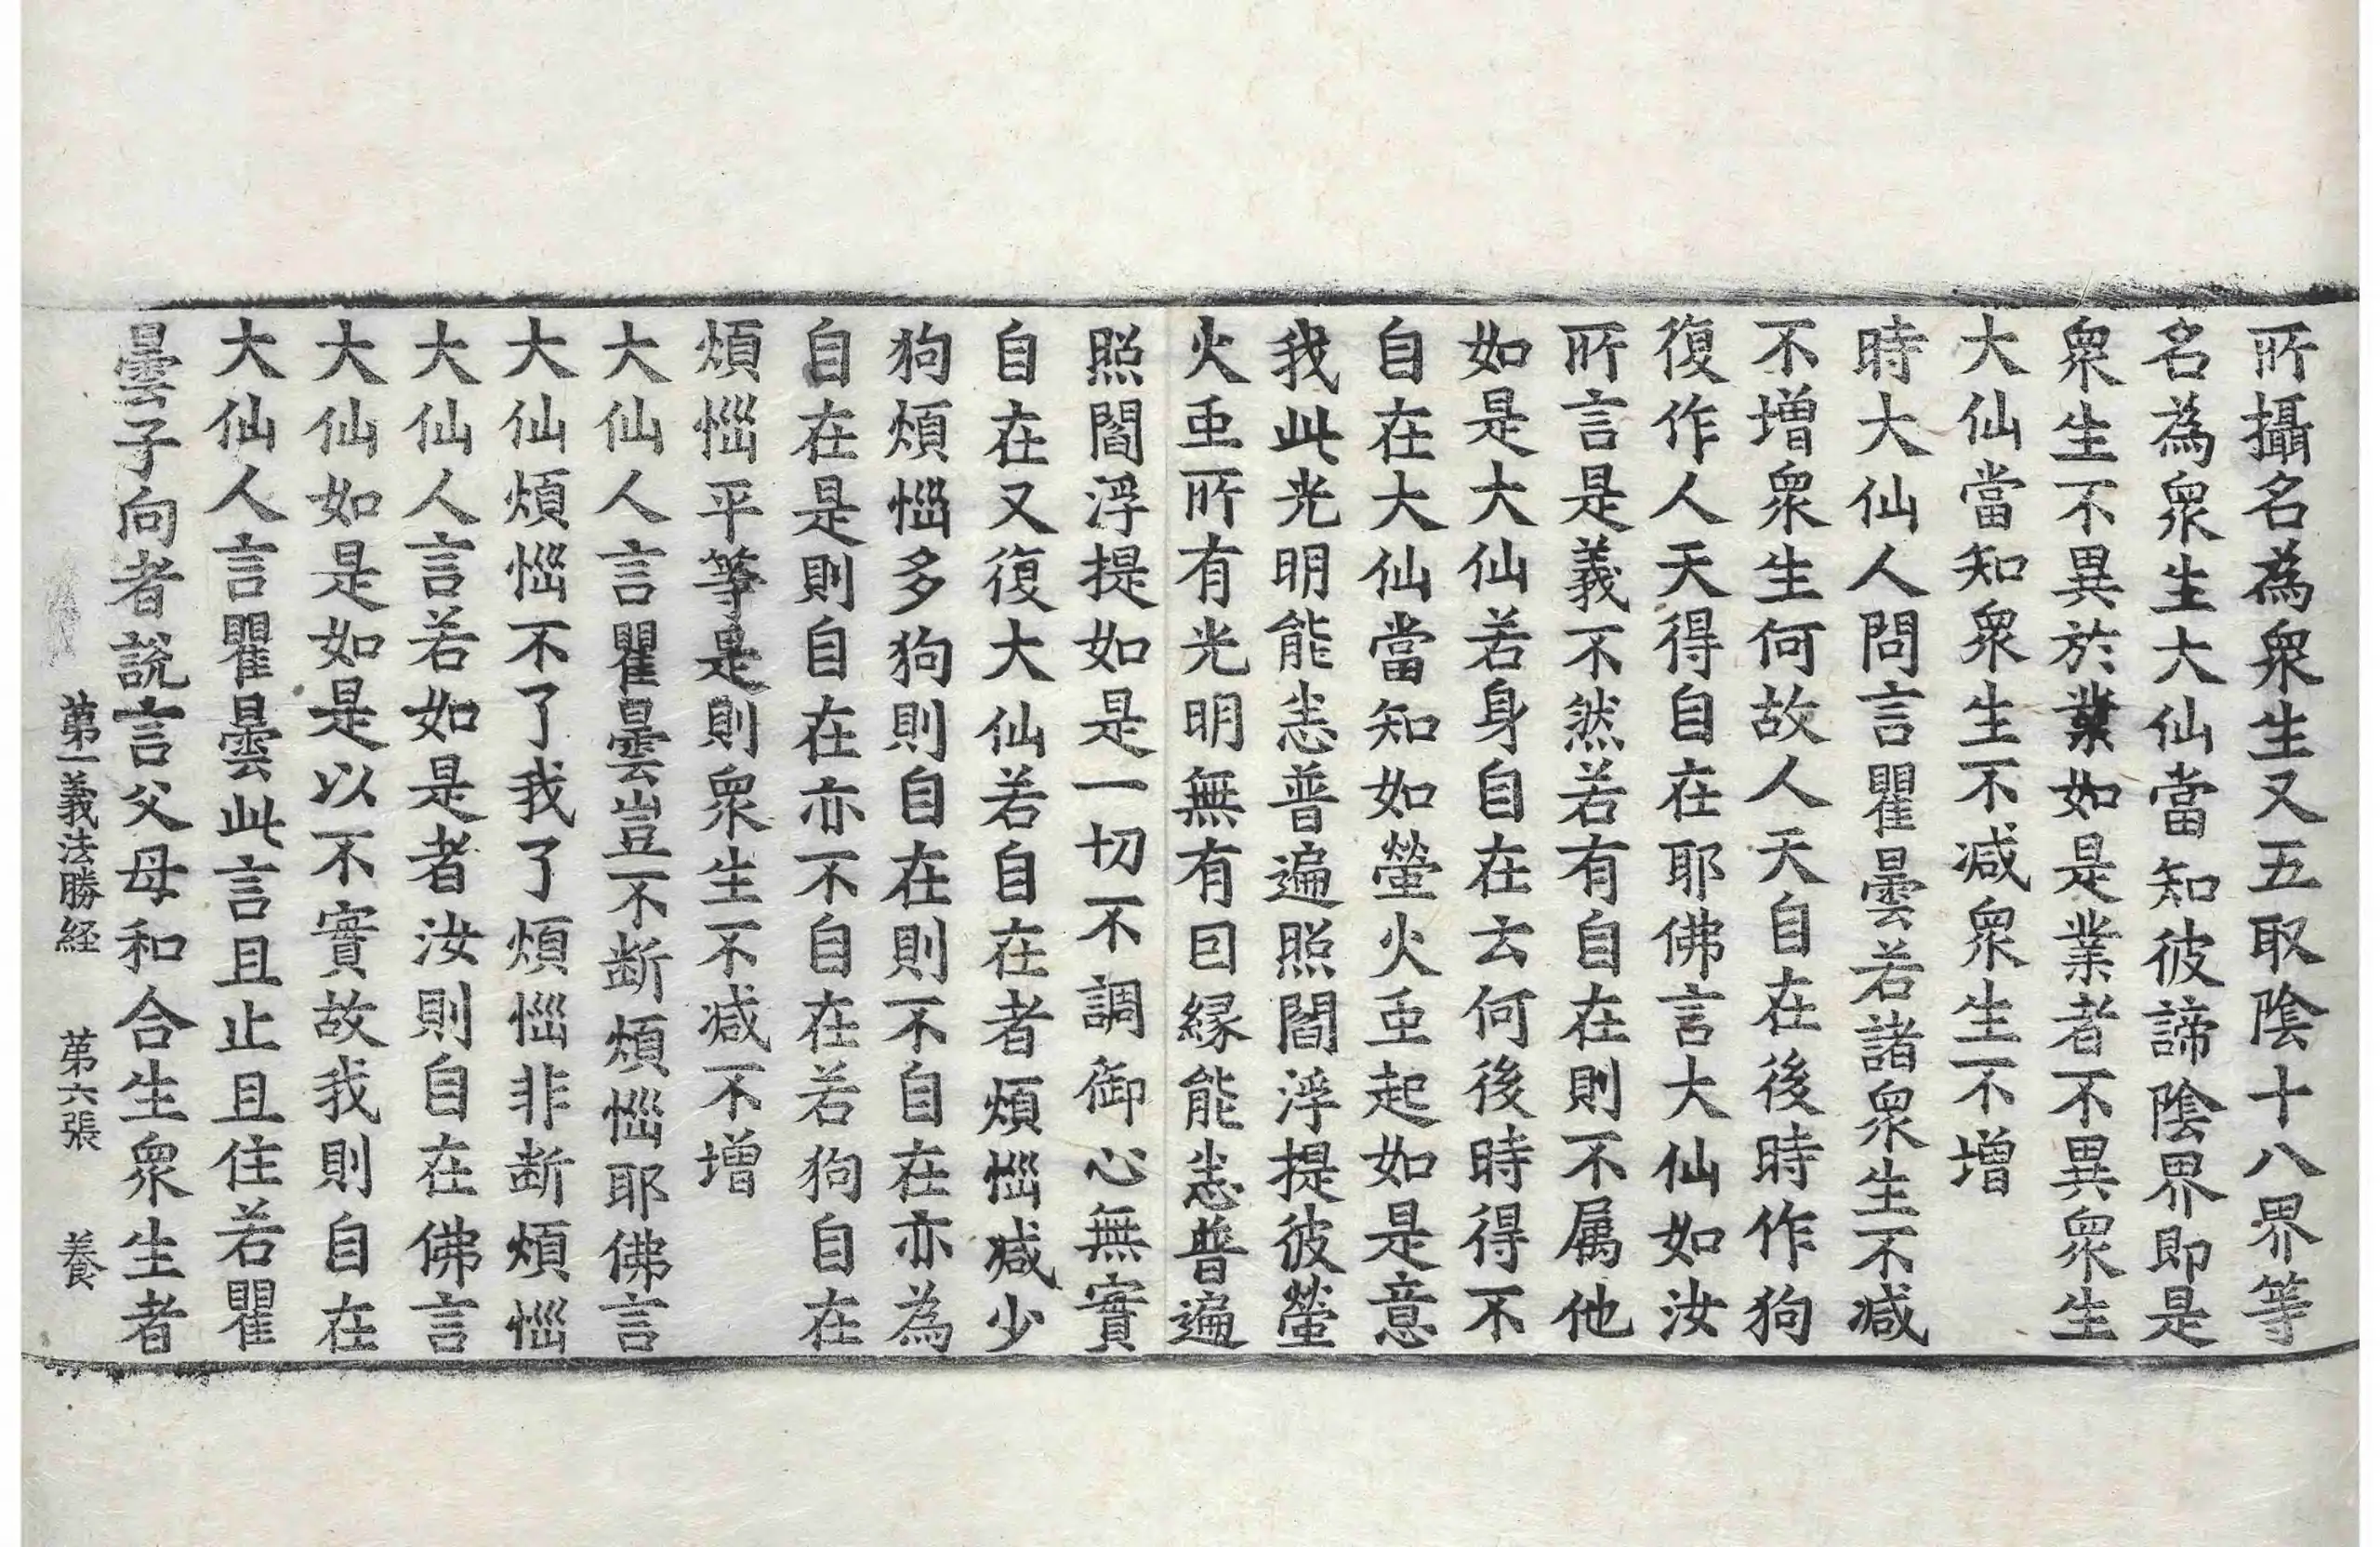 所攝名為衆生又五取陰十八界等
名為衆生大仙當知彼諦陰界即是
衆生不異於業如是業者不異衆生
大仙當知衆生不减衆生不增
時大仙人問言瞿曇若諸衆生不减
不增衆生何故人天自在後時作狗
復作人天得自在耶佛言大仙如汝
所言是義不然若有自在則不属他
如是大仙若身自在云何後時得不
自在大仙當知如螢火虫起如是意
我此光明能悉普遍照閻浮提彼螢
火虫所有光明無有因縁能悉普遍
照閻浮提如是一切不調御心無實
自在又復大仙若自在者煩惱减少
狗煩惱多狗則自在則不自在亦為
自在是則自在亦不自在若狗自在
煩惱平等是則衆生不减不增
大仙人言瞿曇豈不断煩惱耶佛言
大仙煩惱不了我了煩惱非断煩惱
大仙人言若如是者汝則自在佛言
大仙如是如是以不實故我則自在
大仙人言瞿曇此言且止且住若瞿
曇子向者説言父母和合生衆生者
第一義法勝経 第六張 養